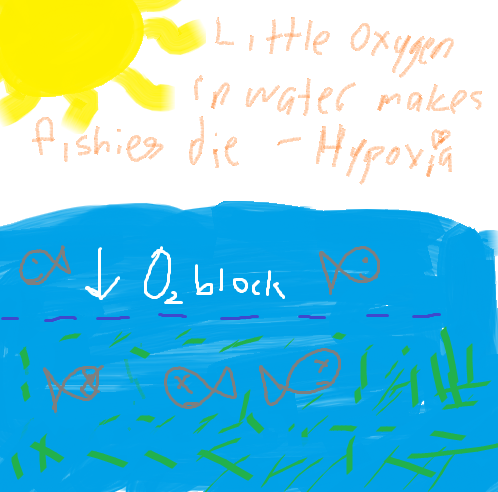 Little Oxygen
in water makes
fishies die - Hypoxia
↓ O₂ block